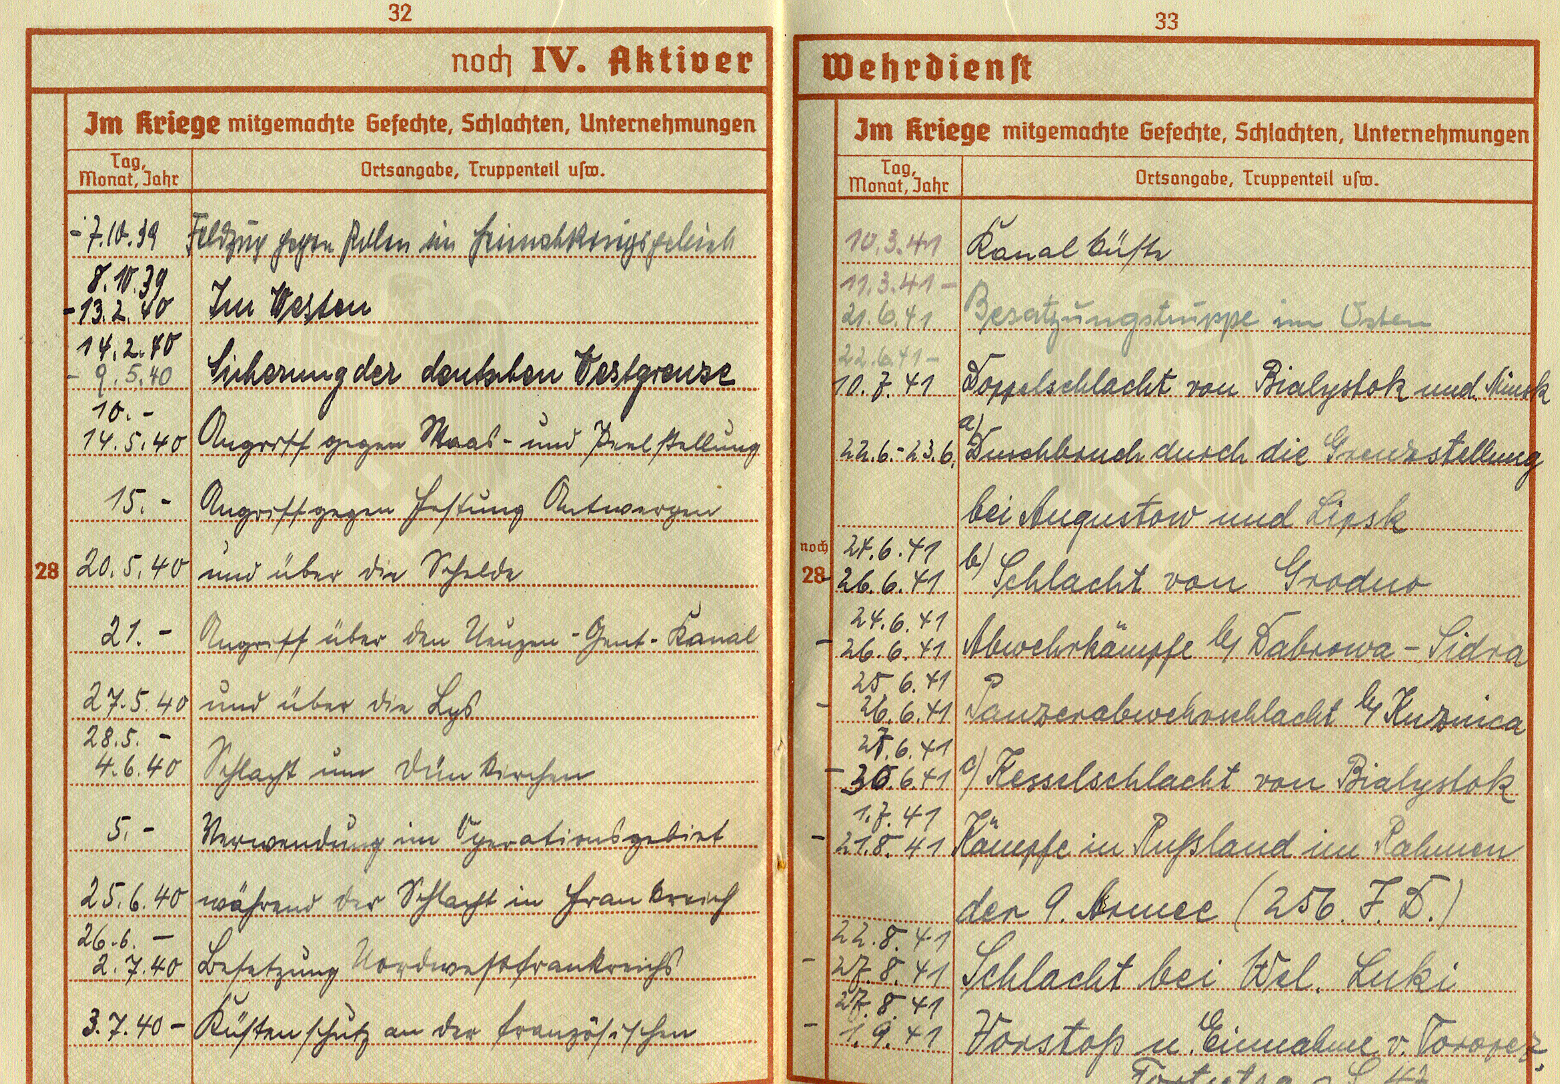 32
noch IV. Aktiver
Im Kriege mitgemachte Gefechte, Schlachten, Unternehmungen
Tag,
Monat, Jahr
Ortsangabe, Truppenteil usw.
- 7.10.39 Feldzug gegen Polen im Heimatkriegsgebiet
8.10.39
- 13.2.40 Im Westen
14.2.40
- 9.5.40 Sicherung der deutschen Westgrenze
10. -
14.5.40 Angriff gegen Maas- und Peelstellung
15. - Angriff gegen Festung Antwerpen
28 20.5.40 und über die Schelde
21. - Angriff über den -Gent-Kanal
27.5.40 und über die Lys
28.5. -
4.6.40 Schlacht um Dünkirchen
5. - Verwendung im Operationsgebiet
25.6.40 während der Schlacht in Frankreich
26.6. -
2.7.40 Besetzung Nordwestfrankreichs
3.7.40 - Küstenschutz an der französischen
33
Wehrdienst
Im Kriege mitgemachte Gefechte, Schlachten, Unternehmungen
Tag,
Monat, Jahr
Ortsangabe, Truppenteil usw.
10.3.41 Kanalküste
11.3.41 -
21.6.41 Besatzungstruppe im Osten
22.6.41 -
10.7.41 Doppelschlacht von Bialystok und Minsk
22.6.-23.6. a) Durchbruch durch die Grenzstellung
bei Augustow und Lipsk
noch 24.6.41
28 - 26.6.41 b) Schlacht von Grodno
24.6.41
- 26.6.41 Abwehrkämpfe b/ Dabrowa - Sidra
25.6.41
- 26.6.41 Panzerabwehrschlacht b/ Kuznica
27.6.41
- 30.6.41 c) Kesselschlacht von Bialystok
1.7.41
- 21.8.41 Kämpfe in Rußland im Rahmen
der 9. Armee (256. J.D.)
22.8.41
- 27.8.41 Schlacht bei Wel. Luki
27.8.41
- 1.9.41 Vorstoß u. Einnahme v. Toropez,